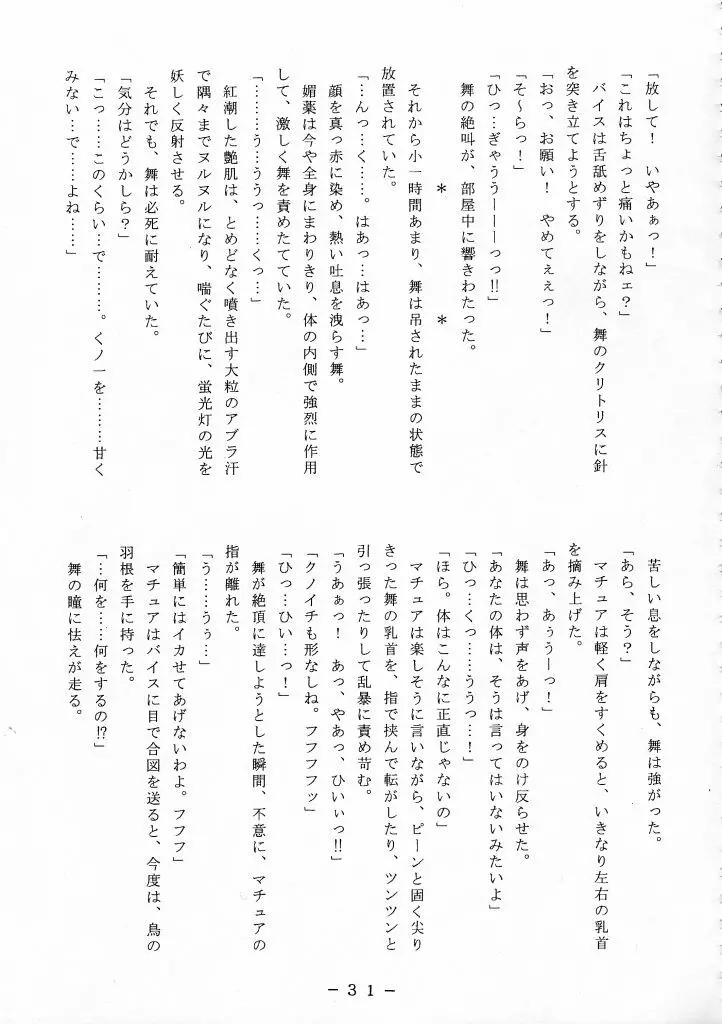 「放して！　いやあぁっ！」
「これはちょっと痛いかもねェ？」
バイスは舌舐めずりをしながら、舞のクリトリスに針
を突き立てようとする。
「おっ、お願い！　やめてぇぇっ！」
「そ～らっ！」
「ひっ…ぎゃううーーーっっ!!」
舞の絶叫が、部屋中に響きわたった。
＊　＊
それから小一時間あまり、舞は吊されたままの状態で
放置されていた。
「…んっ…く……。はあっ…はあっ…」
顔を真っ赤に染め、熱い吐息を洩らす舞。
媚薬は今や全身にまわりきり、体の内側で強烈に作用
して、激しく舞を責めたてていた。
「………う…ううっ……くっ…」
紅潮した艶肌は、とめどなく噴き出す大粒のアブラ汗
で隅々までヌルヌルになり、喘ぐたびに、蛍光灯の光を
妖しく反射させる。
それでも、舞は必死に耐えていた。
「気分はどうかしら？」
「こっ……このくらい…で………。くノ一を………甘く
みない…で……よね……」
苦しい息をしながらも、舞は強がった。
「あら、そう？」
マチュアは軽く肩をすくめると、いきなり左右の乳首
を摘み上げた。
「あっ、あぅうーっ！」
舞は思わず声をあげ、身をのけ反らせた。
「あなたの体は、そうは言ってはいないみたいよ」
「ひっ…くっ……ううっ…！」
「ほら。体はこんなに正直じゃないの」
マチュアは楽しそうに言いながら、ピーンと固く尖り
きった舞の乳首を、指で挟んで転がしたり、ツンツンと
引っ張ったりして乱暴に責め苛む。
「うあぁっ！　あっ、やあっ、ひいぃっ!!」
「クノイチも形なしね。フフフフッ」
「ひっ…ひい…っ！」
舞が絶頂に達しようとした瞬間、不意に、マチュアの
指が離れた。
「う……うぅ…」
「簡単にはイカせてあげないわよ。フフフ」
マチュアはバイスに目で合図を送ると、今度は、鳥の
羽根を手に持った。
「…何を……何をするの!?」
舞の瞳に怯えが走る。
－３１－